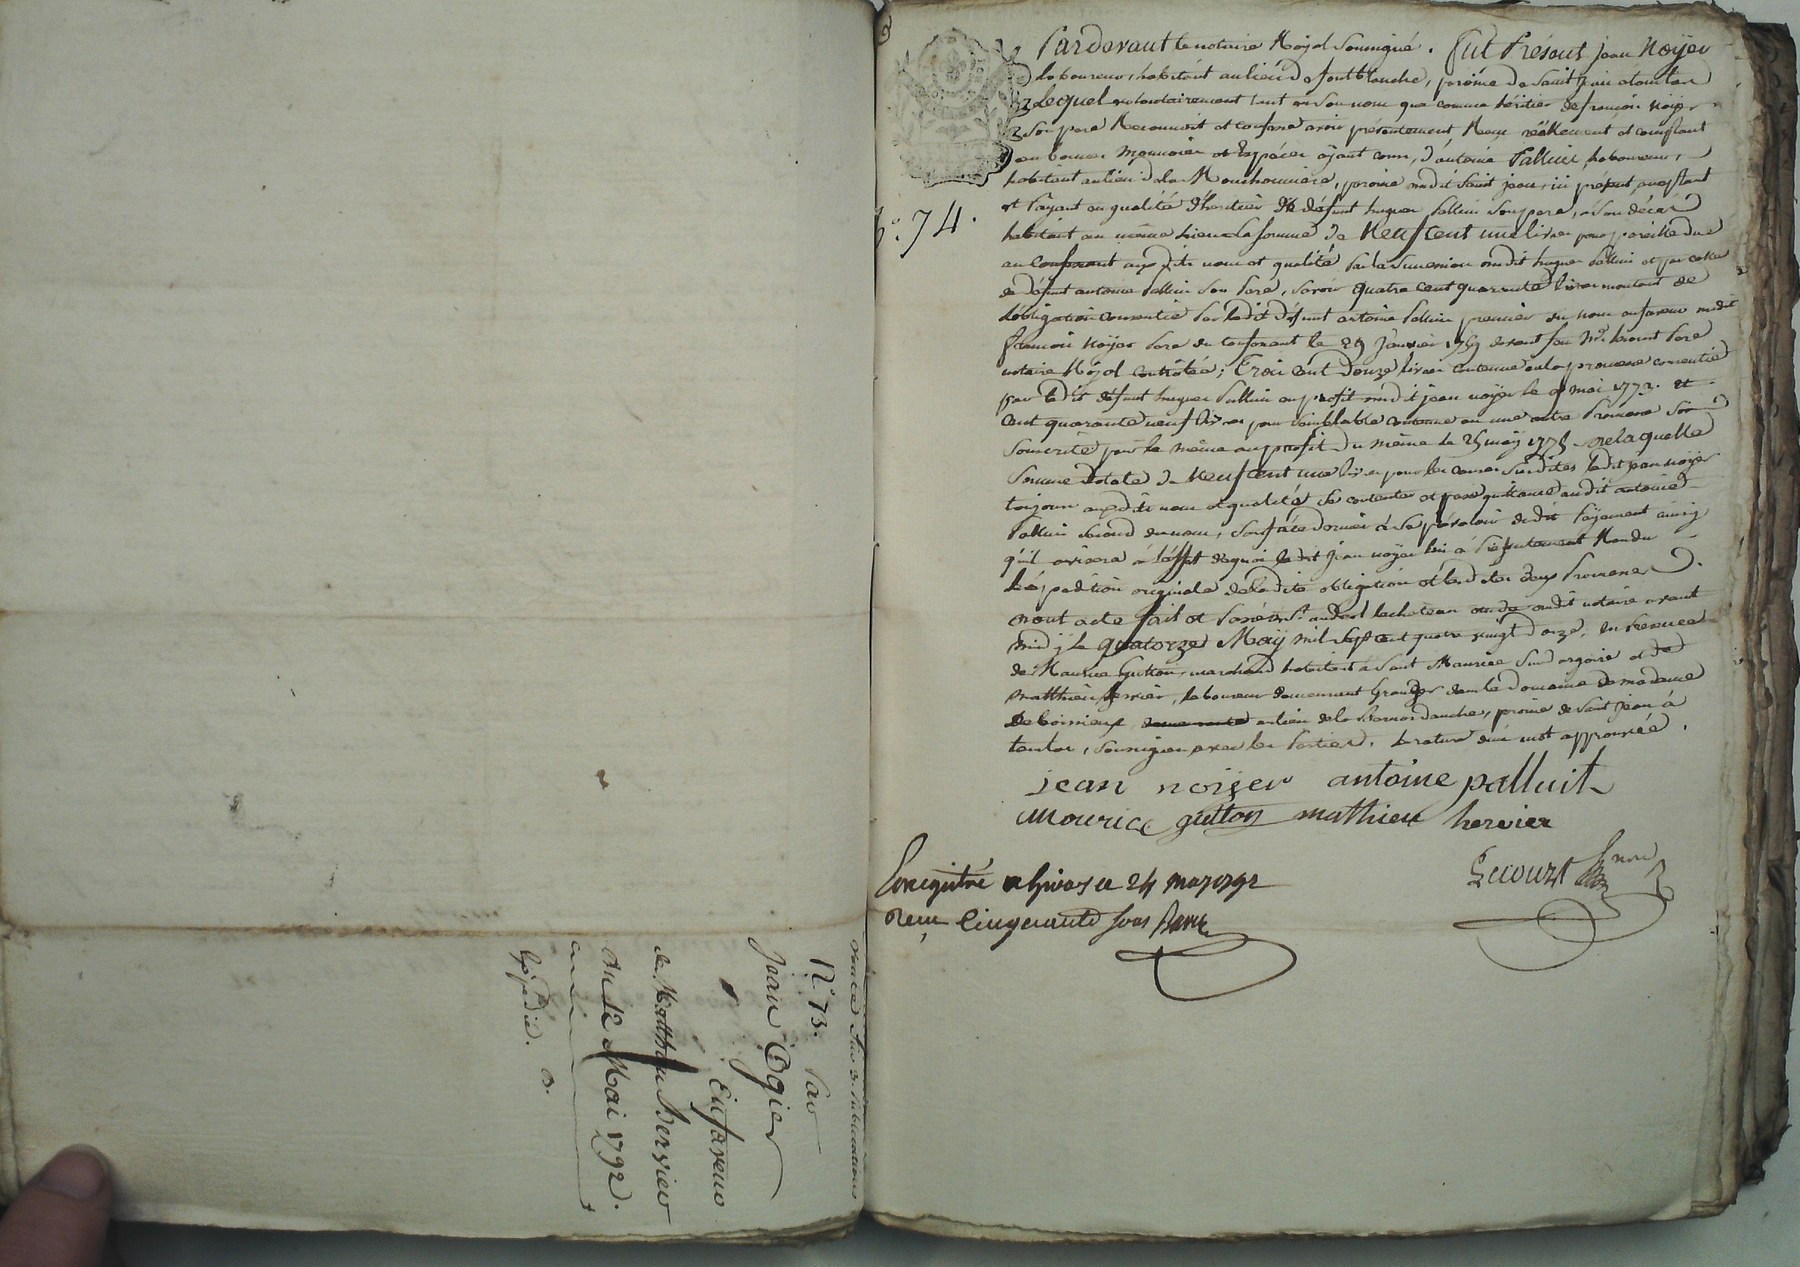 Quittance sur 3. publications
N.° 73. Par
Jean Ogier
En faveur
de Matthieu Hervier
du 12 Mai 1792.
Expédié.
N.° 74.
Pardevant le notaire Royal Soussigné. fut Présent jean Noÿer
laboureur, habitant au lieu de font blanche, paroisse de Saint Jean atoulas
Lequel volontairement tant en Son nom que comme héritier de françois noÿer
Son pere Reconnoit et confesse avoir présentement Reçu réellement et comptant
en bonnes Monnoies et Espèces aÿant cours, d'antoine Palluit laboureur,
habitant au lieu de la Mouchonniere, paroisse mondit Saint jean, ici présent acceptant
et Païant en qualité d'heritier de défunt hugues Palluit Son pere, a Son décès
habitant au même lieu La Somme de Neuf cent une livres pour pareille due
au Confessant auxdits nom et qualité Par la Succession dudit hugues Palluit et par celle
de défunt antoine Palluit Son Pere, Savoir quatre cent quarante livres montant de
l'obligation consentie Par ledit défunt antoine Palluit premier du nom en faveur dudit
françois Noÿer Pere du confessant le 29 Janvier 1759 devant feu M.e Pere
notaire Roÿal controlée; Trois cent douze livres contenues en la promesse consentie
par ledit défunt hugues Palluit au profit dudit jean noÿer le 9 mai 1772. et
cent quarante neuf livres pour Semblable contenue en une autre Promesse
Souscrite par le même au profit du même le 25 maÿ 1775 de laquelle
Somme totale de Neuf cent une livres pour les causes Susdites ledit jean noÿer
toujours auxdits nom et qualité Se contente et passe quittance audit antoine
Palluit Second du nom, Sauf à ce dernier à Se prévaloir dudit Païement ainsi
qu'il avisera a l'effet de quoi ledit Jean noÿer lui a présentement Rendu
l'éxpédition originale de ladite obligation et lesdites deux Promesses.
Dont acte fait et Passé a S.t andéol le chateau etude dudit notaire avant
midÿ le quatorze Maÿ mil Sept cent quatre vingt douze, en Presence
de Maurice Guitton, marchand habitant à Saint Maurice Sur dargoire et de
Matthieu hervier, laboureur demeurant Granger dans le Domaine de madame
De boissieux au lieu de la Bernardanche, paroisse de Saint Jean à
toulas, Soussignés avec les Parties. la rature d'un mot approuvée.
jean noiÿer antoine palluit
mourice guitton mathieu hervier
Lecourt no.re
Enregistré a Givors le 24 may 1792
Recu Cinquante Sous